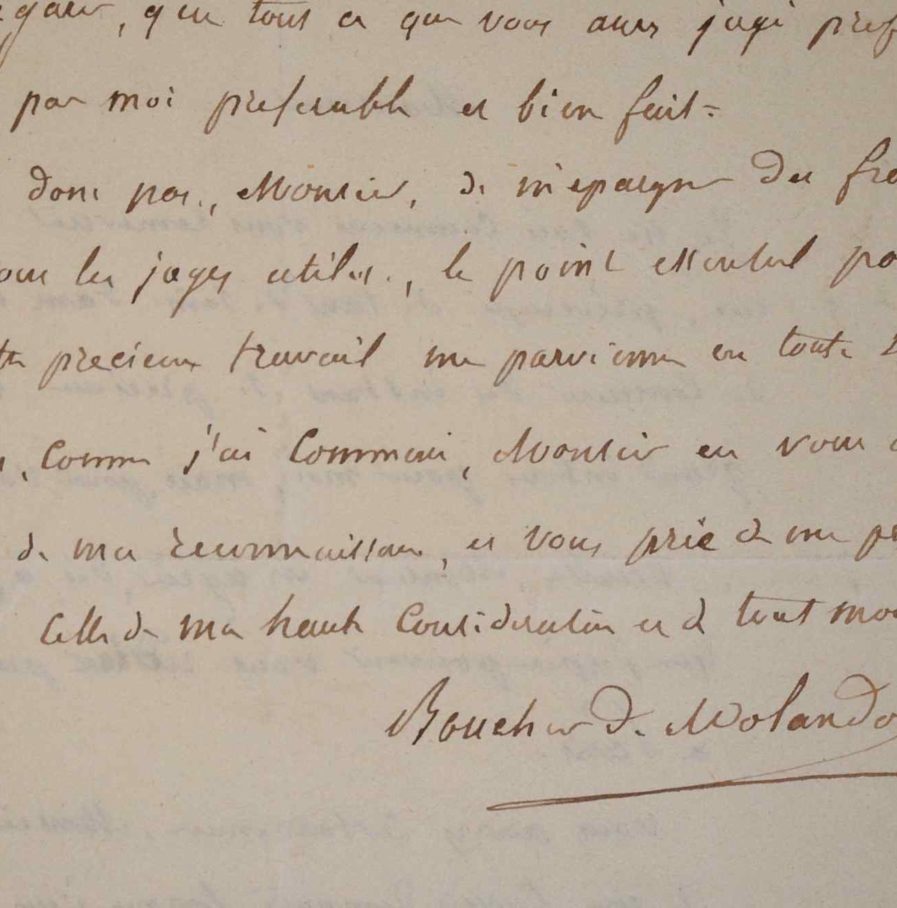 , q'en tout ce que vous aures jugé pref
par moi preferable et bien fait =
donc pas, Monsieur, de m'epargner des fra
les juges utiles, le point essentiel
precieux travail me parvienne en toute
, comme j'ai commencé, Monsieur en vous
de ma reconnaissance, et vous prie de me pe
celle de ma haute consideration et de tout mon
Boucher de Molando